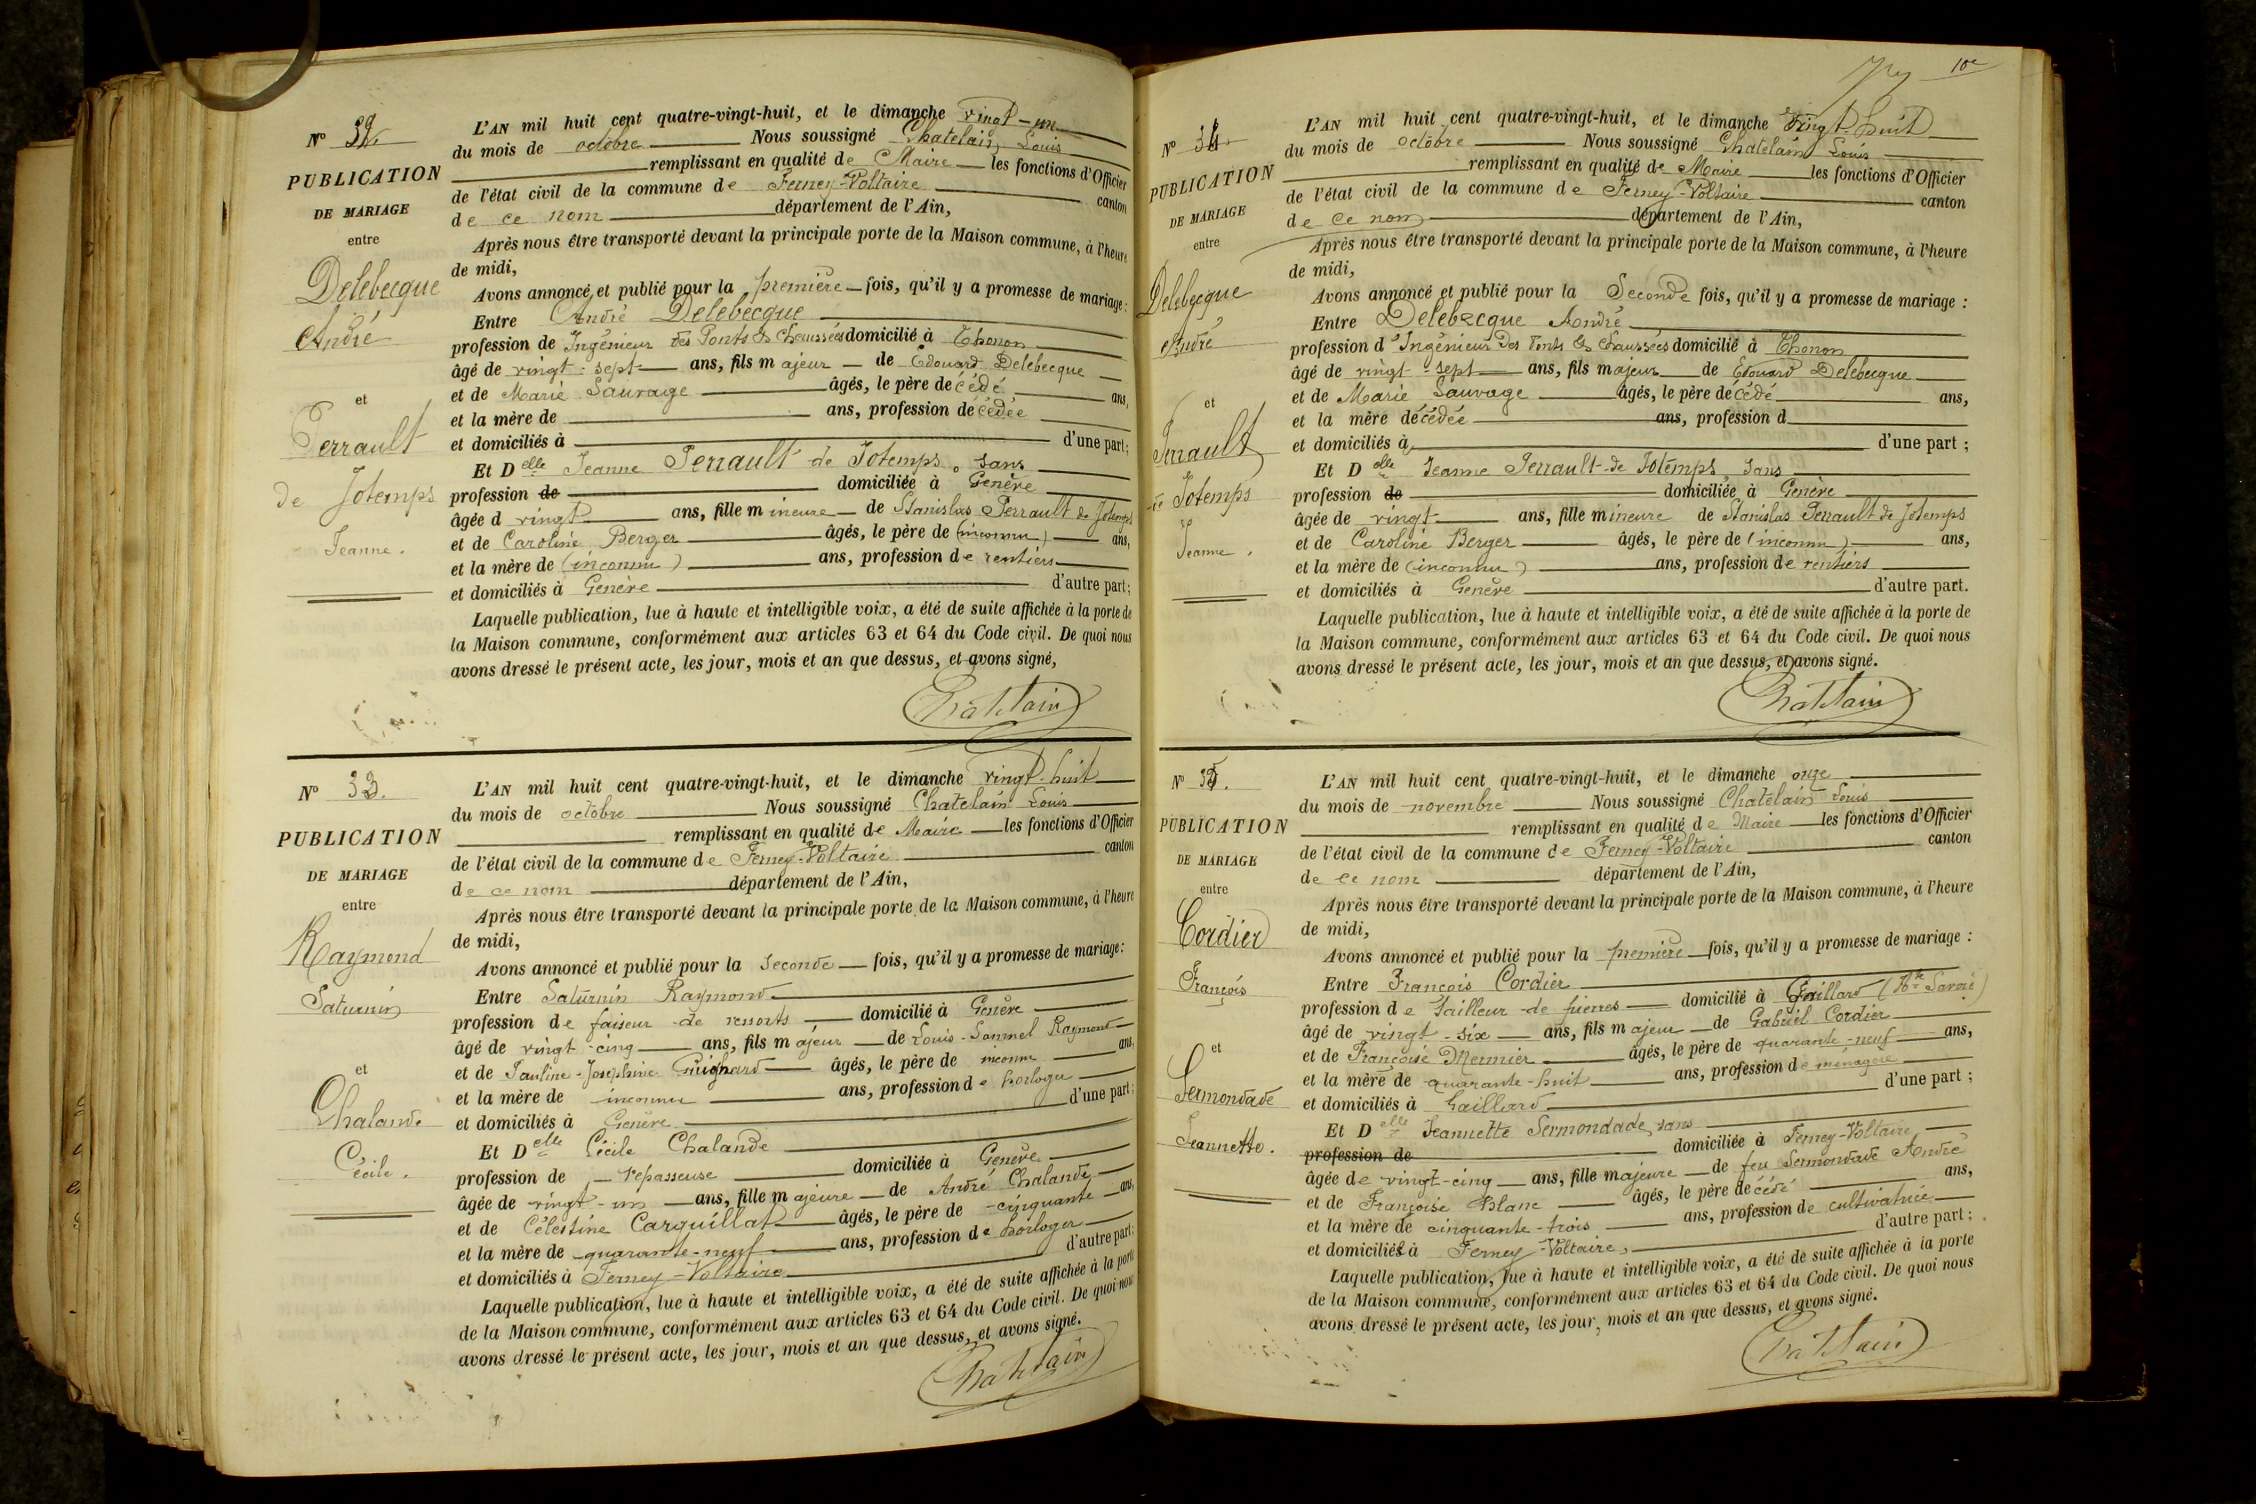 Nº 32
PUBLICATION
DE MARIAGE
entre
Delebecque
André
et
Perrault
de Jotemps
Jeanne.
L'AN mil huit cent quatre-vingt-huit, et le dimanche vingt-un
du mois de octobre Nous soussigné Chatelain Louis
remplissant en qualité de Maire les fonctions d'Officier
de l'état civil de la commune de Ferney-Voltaire canton
de ce nom département de l'Ain,
Après nous être transporté devant la principale porte de la Maison commune, à l'heure
de midi,
Avons annoncé et publié pour la première fois, qu'il y a promesse de mariage:
Entre André Delebecque
profession de Ingénieur des Ponts & Chaussées domicilié à Thonon
âgé de vingt-sept ans, fils majeur de Edouard Delebecque
et de Marie Sauvage âgés, le père décédé ans,
et la mère de ans, profession décédée
et domiciliés à d'une part;
Et Delle Jeanne Perrault de Jotemps, sans
profession de domiciliée à Genève
âgée d vingt ans, fille mineure de Stanislas Perrault de Jotemps
et de Caroline Berger âgés, le père de (inconnu) ans,
et la mère de (inconnu) ans, profession de rentiers
et domiciliés à Genève d'autre part;
Laquelle publication, lue à haute et intelligible voix, a été de suite affichée à la porte de
la Maison commune, conformément aux articles 63 et 64 du Code civil. De quoi nous
avons dressé le présent acte, les jour, mois et an que dessus, et avons signé,
Chatelain
Nº 33.
PUBLICATION
DE MARIAGE
entre
Raymond
Saturnin
et
Chalande
Cécile.
L'AN mil huit cent quatre-vingt-huit, et le dimanche vingt-huit
du mois de octobre Nous soussigné Chatelain Louis
remplissant en qualité de Maire les fonctions d'Officier
de l'état civil de la commune de Ferney-Voltaire canton
de ce nom département de l'Ain,
Après nous être transporté devant la principale porte de la Maison commune, à l'heure
de midi,
Avons annoncé et publié pour la seconde fois, qu'il y a promesse de mariage:
Entre Saturnin Raymond
profession de faiseur de ressorts domicilié à Genève
âgé de vingt-cinq ans, fils majeur de Louis-Sammel Raymond
et de Pauline-Josephine Guignard âgés, le père de inconnu ans,
et la mère de inconnu ans, profession de horloger
et domiciliés à Genève d'une part;
Et Delle Cécile Chalande
profession de repasseuse domiciliée à Genève
âgée de vingt-un ans, fille majeure de André Chalande
et de Célestine Carquillat âgés, le père de cinquante ans,
et la mère de quarante-neuf ans, profession de horloger
et domiciliés à Ferney-Voltaire d'autre part;
Laquelle publication, lue à haute et intelligible voix, a été de suite affichée à la porte
de la Maison commune, conformément aux articles 63 et 64 du Code civil. De quoi nous
avons dressé le présent acte, les jour, mois et an que dessus, et avons signé.
Chatelain
10e
Nº 34
PUBLICATION
DE MARIAGE
entre
Delebecque
André
et
Perrault
de Jotemps
Jeanne.
L'AN mil huit cent quatre-vingt-huit, et le dimanche Vingt-huit
du mois de octobre Nous soussigné Chatelain Louis
remplissant en qualité de Maire les fonctions d'Officier
de l'état civil de la commune de Ferney-Voltaire canton
de ce nom département de l'Ain,
Après nous être transporté devant la principale porte de la Maison commune, à l'heure
de midi,
Avons annoncé et publié pour la Seconde fois, qu'il y a promesse de mariage :
Entre Delebecque André
profession d'Ingénieur des Ponts & chaussées domicilié à Thonon
âgé de vingt-sept ans, fils majeur de Edouard Delebecque
et de Marie Sauvage âgés, le père décédé ans,
et la mère décédée ans, profession d
et domiciliés à d'une part ;
Et Delle Jeanne Perrault de Jotemps, sans
profession de domiciliée à Genève
âgée de vingt ans, fille mineure de Stanislas Perrault de Jotemps
et de Caroline Berger âgés, le père de (inconnu) ans,
et la mère de (inconnu) ans, profession de rentiers
et domiciliés à Genève d'autre part.
Laquelle publication, lue à haute et intelligible voix, a été de suite affichée à la porte de
la Maison commune, conformément aux articles 63 et 64 du Code civil. De quoi nous
avons dressé le présent acte, les jour, mois et an que dessus, et avons signé.
Chatelain
Nº 35.
PUBLICATION
DE MARIAGE
entre
Cordier
François
et
Sermondade
Jeannette.
L'AN mil huit cent quatre-vingt-huit, et le dimanche onze
du mois de novembre Nous soussigné Chatelain Louis
remplissant en qualité de Maire les fonctions d'Officier
de l'état civil de la commune de Ferney-Voltaire canton
de ce nom département de l'Ain,
Après nous être transporté devant la principale porte de la Maison commune, à l'heure
de midi,
Avons annoncé et publié pour la première fois, qu'il y a promesse de mariage :
Entre François Cordier
profession de Tailleur de pierres domicilié à Gaillard (Hte Savoie)
âgé de vingt-six ans, fils majeur de Gabriel Cordier
et de Françoise Mermier âgés, le père de quarante-neuf ans,
et la mère de quarante-huit ans, profession de ménagère
et domiciliés à Gaillard d'une part ;
Et Delle Jeannette Sermondade, sans
profession de domiciliée à Ferney-Voltaire,
âgée de vingt-cinq ans, fille majeure de feu Sermondade André
et de Françoise Blanc âgés, le père décédé ans,
et la mère de cinquante-trois ans, profession de cultivatrice
et domiciliés à Ferney-Voltaire, d'autre part ;
Laquelle publication, lue à haute et intelligible voix, a été de suite affichée à la porte
de la Maison commune, conformément aux articles 63 et 64 du Code civil. De quoi nous
avons dressé le présent acte, les jour, mois et an que dessus, et avons signé.
Chatelain